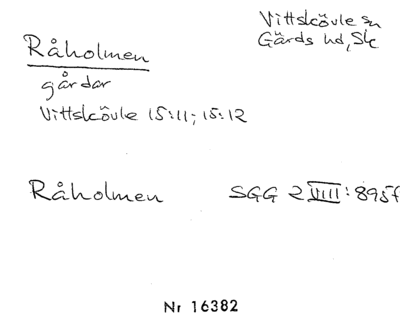 Råholmen
Vittskövle sn
Gärds hd, Sk
gårdar
Vittskövle 15:11; 15:12
Råholmen SGG 2 VIII: 895f
Nr 16382